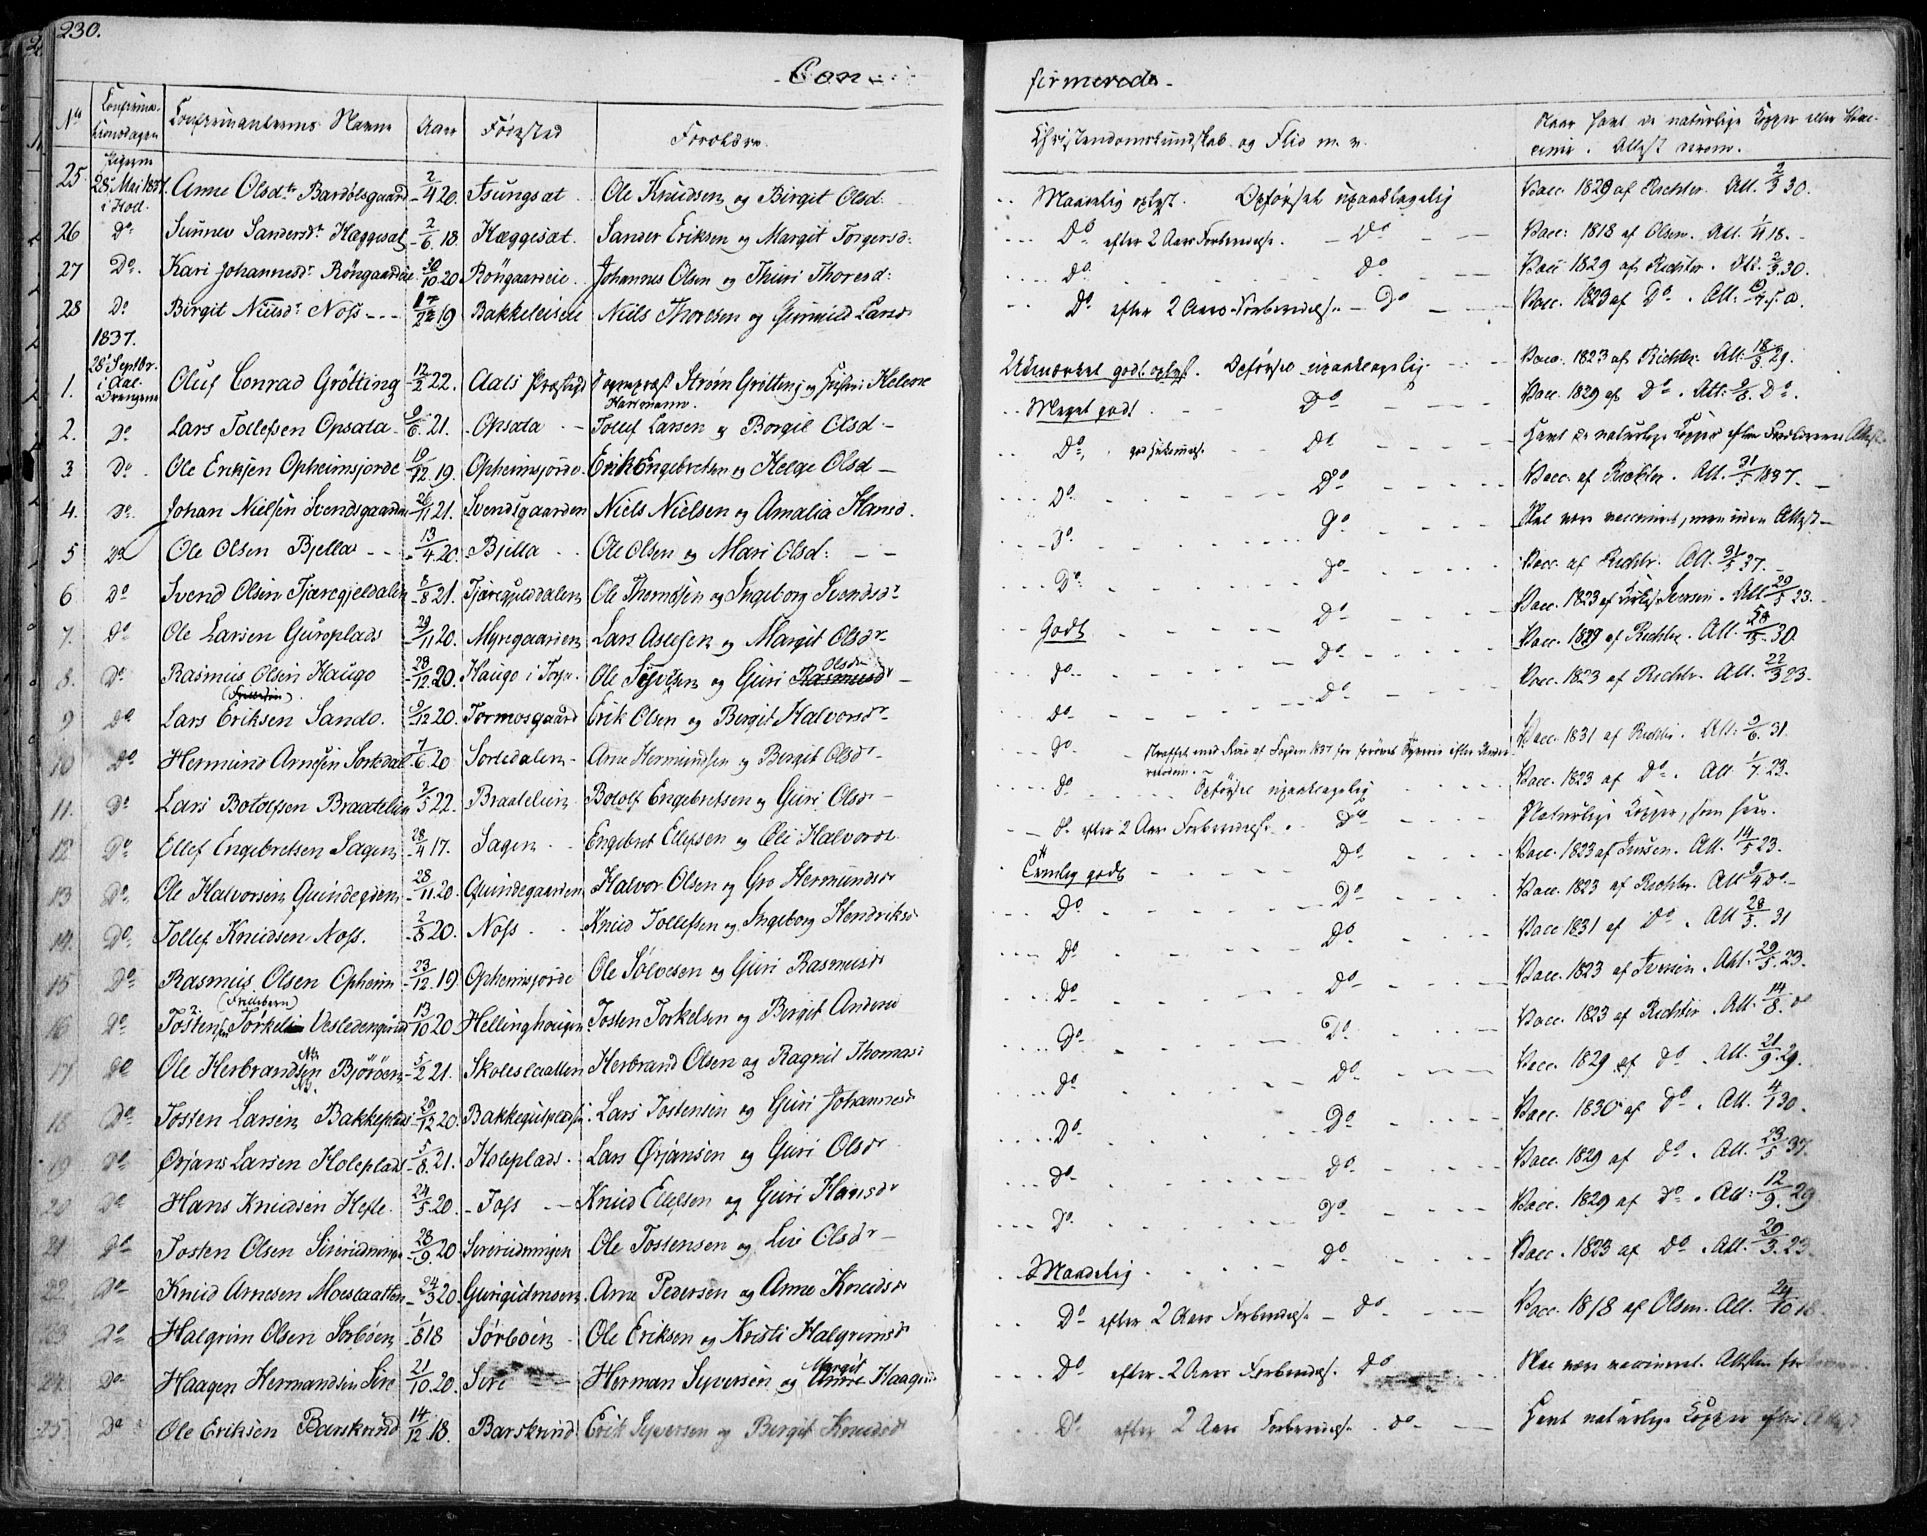 230.
Con-
firmerede.
No Confirma-tionsdagen Confirmanternes Navne Aar Fødested Forældre Christendomskundskab og Flid m. v. Naar havt de naturlige Kopper eller Vaccine. Attest derom.
Pigerne
25. 28 Mai 1837 i Holl. Anne Olsdr Bardølsgaard 2/4 20. Ole Knudsen og Birgit Olsd: Maadelig oplyst. Opførsel upaaklagelig Vacc. 1829 af Richter. Att. 2/3 30.
26 Do Sunnev Sandersdr Hæggesat 2/6 18. Hæggesat. Sander Eriksen og Margit Torgersd: Do efter 2 Aars Forberedelse. Do Vacc: 1818 af Olsen. Att. 18.
27 Do. Kari Johannesdr Røngaardeie 30/10 20 Røngaardeie. Johannes Olsen og Thuri Thoresd: Do Do Vacc 1829 af Richter. Att. 2/3 30.
28 Do Birgit Nilsdr Noss 19 Bakkeleiseie Niels Thoresen og Gunnild Larsd: Do efter 2 Aars Forberedelse. Do Vacc. 1823 af Do. Att:
1837.
1. 28 Septbr. i Aal. Drengene Oluf Conrad Grøtting 12/2 22. Aals Præstegd Sognepræst Strøm Grøtting og Helene Hartmann. Udmærket godt oplyst. Opførsel upaaklagelig Vacc. 1823 af Richter. Att: 18/3 29.
2. Do Lars Tollefsen Opsata 21. Opsata Tollef Larsen og Borgil Olsd Meget godt. Do Vacc. 1829 af Do. Att: Do.
3 Do Ole Eriksen Opheimsjorde 19/12 19. Opheimsjorde. Erik Engebretsen og Helge Olsd Do, Do Havt de naturlige Kopper efter Attest.
4. Do. Johan Nielsen Svendsgaarden 26/11 21. Svendsgaarden Niels Nielsen og Amalia Hansd. Do Do Vacc. af Richter. Att. 31/5 1837.
5 Do Ole Olsen Bjella 13/4 20. Bjella Ole Olsen og Mari Olsd: Do Do Skal være vaccineret, men uden Attest
6 Do Svend Olsen Tjæregjeldalen 8/8 21. Tjæregjeldalen Ole Thomassen og Ingeborg Svendsdr Do Do Vacc. af Richtr. Att. 31/5 37.
7. Do Ole Larsen Guroplads 29/11 20. Myregaarden Lars Aslesen og Margit Olsdr Godt Do Vacc. 1823 af Iversen. Att 29/5 23.
8. Do Rasmus Olsen Haugo 28/12 20. Haugo i Torpe. Ole Syversen og Guri Rasmusdr Olsdr Do Do Vacc. 1829 af Richter. Att. 30.
9 Do Lars Eriksen Sando. 9/12 20. Tormosgaard Erik Olsen og Bergit Halvorsdr Do Do Vacc. 1823 af Richtr. Att. 22/3 23.
10 Do Hermund Arnesen Sortedal 7/6 20 Sortedalen Arne Hermundsen og Bergit Olsdr Do Straffet med Riis af Fogden 1837 for prøvet Tyverie efter Vacc. 1831 af Richtr. Att. 9/6 31.
11. Do Lars Botolfsen Braatelien 3/5 22. Braatelien Botolf Engebretsen og Guri Olsdr Do Opførsel upaaklagelig Vacc. 1823 af Do. Att. 1/7 23.
12 Do Ellef Engebretsen Sagen 28/4 17. Sagen Engebret Ellefsen og Eli Halvorsdr Do efter 2 Aars Forberedelse. Do Naturlige Kopper,
13 Do Ole Halvorsen Quindegden 28/11 20. Quindegaarden Halvor Olsen og Gro Hermundsdr Temlig godt Do Vacc. 1823 af Iversen. Att. 14/5 23.
14. Do Tollef Knudsen Noss. 2/8 20. Noss Knud Tollefsen og Ingeborg Hendriksdr Do Do Vacc. 1823 af Richtr. Att Do.
15 Do Rasmus Olsen Opheim 23/12 19 Opheimsjorde Ole Sølvesen og Guri Rasmusdr Do Do Vacc 1831 af Do. Att 28/3. 31
16 Do Tosten Torkelsen Vesledengaard 13/10 20 Hellinghougen Tosten Torkelsen og Bergit Andersd Do Do Vacc. 1823 af Iversen. Att. 29/5 23.
17 Do Ole Herbrandsen Bjørøen 5/2 21. Skoleslaatten Herbrand Olsen og Ragnil Thomasd Do Do Vacc. 1823 af Richter. Att. 14/8 do
18 Do Tosten Larsen Bakkeplads 29/12 20. Lars Tostensen og Guri Johannesdr Do Do Vacc. 1829 af Do. Att. 21/9. 29.
19 Do Ørjans Larsen Holeplads 5/8 21. Holeplads. Lars Ørjansen og Guri Olsdr Do Do Vacc. 1830 af Do. Att. 4/1 30.
20 Do Hans Knudsen Hefte. 24/5 20. Foss Knud Ellefsen og Guri Hansdr Do Do Vacc. 1829 af Do. Att. 23/5 37.
21 Do Tosten Olsen 28/9 20 Ole Tostensen og Liv Olsdr Do Do Vacc. 1829 af Do. Att. 12/9. 29.
22. Do Knud Arnesen Moeslaatten 24/3 20. Arne Pedersen og Anne Knudsdr Maadelig Do Vacc. 1823 af Do. Att. 20/3. 23.
23 Do Halgrim Olsen Sørbøen 1/8 18 Sørbøen Ole Eriksen og Kristi Halgrimsdr Do efter 2 Aars Forberedelse. Do Vacc. 1818 af Olsen. Att. 24/10 18.
24. Do Haagen Hermandsen Sire 21/10 20. Sire Herman Syversen og Anne Margit Haagensd Do efter 2 Aars Forberedelse. Do Skal være vaccineret. Attesten
25. Do Ole Eriksen Barskrind 14/12 18. Barskrind Erik Syversen og Bergit Knudsdr Do efter 2 Aars Forberedelse. Do Havt naturlige Kopper efter Attest